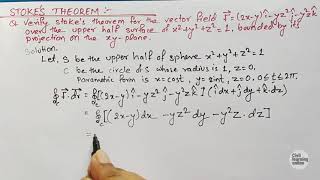 STOKE'S THEOREM :-
Q. Verify stoke's theorem for the vector field F⃗ = (2x-y)î - yz²ĵ - y²zk̂
over the upper half surface of x²+y²+z²=1, bounded by its
projection on the xy-plane.
Solution.
Let, S be the upper half of sphere x²+y²+z²=1
C be the circle of S whose radius is 1, z=0.
Parametric form is x=cost, y=sint, z=0, 0≤t≤2π.
∮c F⃗·dr⃗ = ∮c[(2x-y)î - yz²ĵ - y²zk̂]·(îdx+ĵdy+k̂dz)
= ∮c[(2x-y)dx - yz²dy - y²z·dz]
=
Civil
learning
online